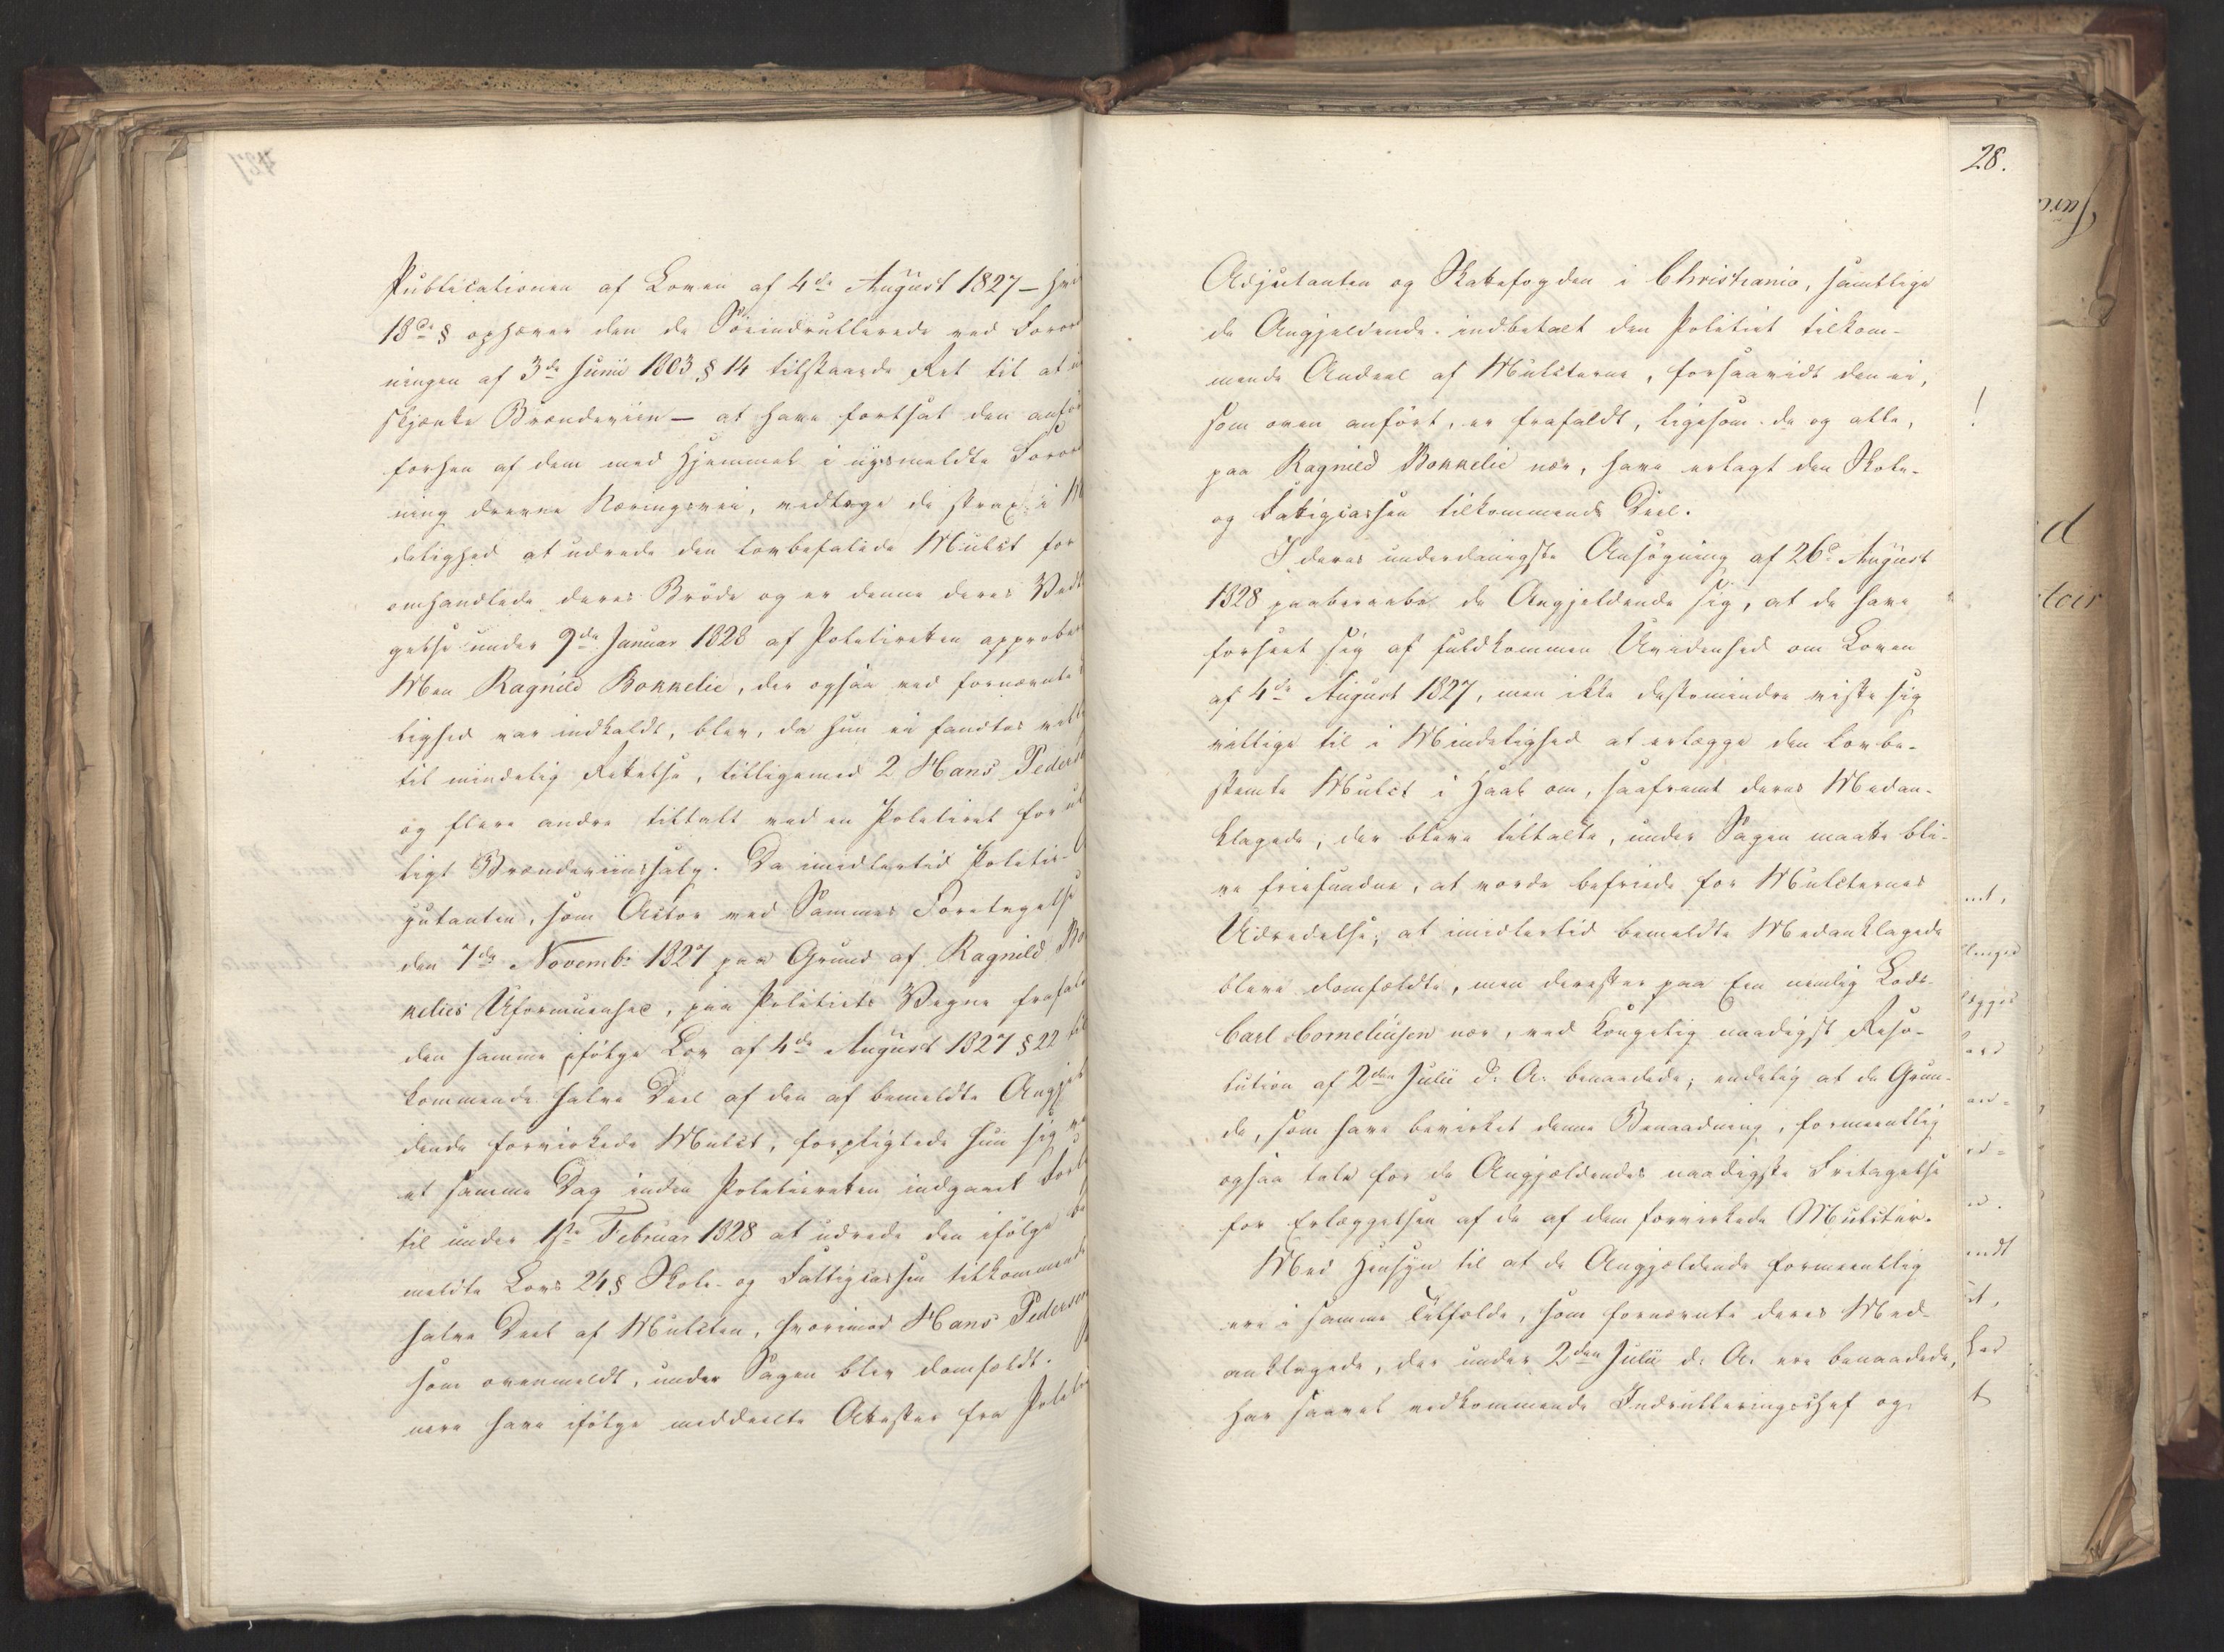 Publicationen af Loven af 4de August 1827 – hvis
18de § ophæver den de Söeindrullerede ved Forord
ningen af 3de Junii 1803 § 14 tilstaaede Ret til at
skjænke Brændeviin – at have fortsat den
forhen af dem med Hjemmel i nysmeldte Forord
ning drevne Næringsvei, vedtoge de strax i
delighed at udrede den lovbefalede Mulct for
omhandlede deres Bröde og er denne deres Vedt
gelse under 9de Januar 1828 af Politiretten approberet
Men Ragnild Bokkelie, der ogsaa ved fornævnte
lighed var indkaldt, blev, da hun ei fandtes villig
til mindelig Rettelse, tilligemed 2 Hans Pedersen
og flere andre tiltalt ved en Politiret for ul
ligt Brændeviinssalg. Da imidlertid Politie-
jutanten, som Actor ved Sammes Foretagelse
den 7de Novembr 1827 paa Grund af Ragnild Bo
kelies Uformuenhed, paa Politiets Vegne frafaldt
den samme ifölge Lov af 4de August 1827 § 22 til
kommende halve Deel af den af bemeldte Angjel
dende forvirkede Mulct, forpligtede hun sig ved
et samme Dag inden Politieretten indgaaet Forlig
til under 1ste Februar 1828 at udrede den ifölge be
meldte Lovs 24 § Skole- og Fattigcassen tilkommende
halve Deel af Mulcten, hvorimod Hans Pedersen
som ovenmeldt, under Sagen blev domfældt.
nere have ifölge meddeelte Attester fra Politie
28.
Adjutanten og Skattefogden i Christiania, samtlige
de Angjeldende indbetalt den Politiet tilkom-
mende Andeel af Mulcterne, forsaavidt den ei,
som oven anfört, er frafaldt, ligesom de og alle,
paa Ragnild Bokkelie nær, have erlagt den Skole-
og Fattigcassen tilkommende Deel.
I deres underdanigste Ansögning af 26de August
1828 paaberaabe de Angjeldende sig, at de have
forseet sig af fuldkommen Uvidenhed om Loven
af 4de August 1827, men ikke destomindre viste sig
villige til i Mindelighed at erlægge den lovbe-
stemte Mulct i Haab om, saafremt deres Medan-
klagede, der bleve tiltalte, under Sagen maatte bli-
ve friefundne, at vorde befriede for Mulcternes
Udredelse; at imidlertid bemeldte Medanklagede
bleve domfældte, men derefter paa Een nemlig Lods
Carl Corneliusen nær, ved Kongelig naadigst Reso-
lution af 2den Julii d. A. benaadede; endelig at de Grun-
de, som have bevirket denne Benaadning, formeentlig
ogsaa tale for de Angjældendes naadigste Fritagelse
for Erlæggelsen af de af dem forvirkede Mulcter.
Med Hensyn til at de Angjældende formeentlig
ere i samme Tilfælde, som fornævnte deres Med-
anklagede, der under 2den Julii d. A. ere benaadede,
har saavel vedkommende Indrulleringschef og